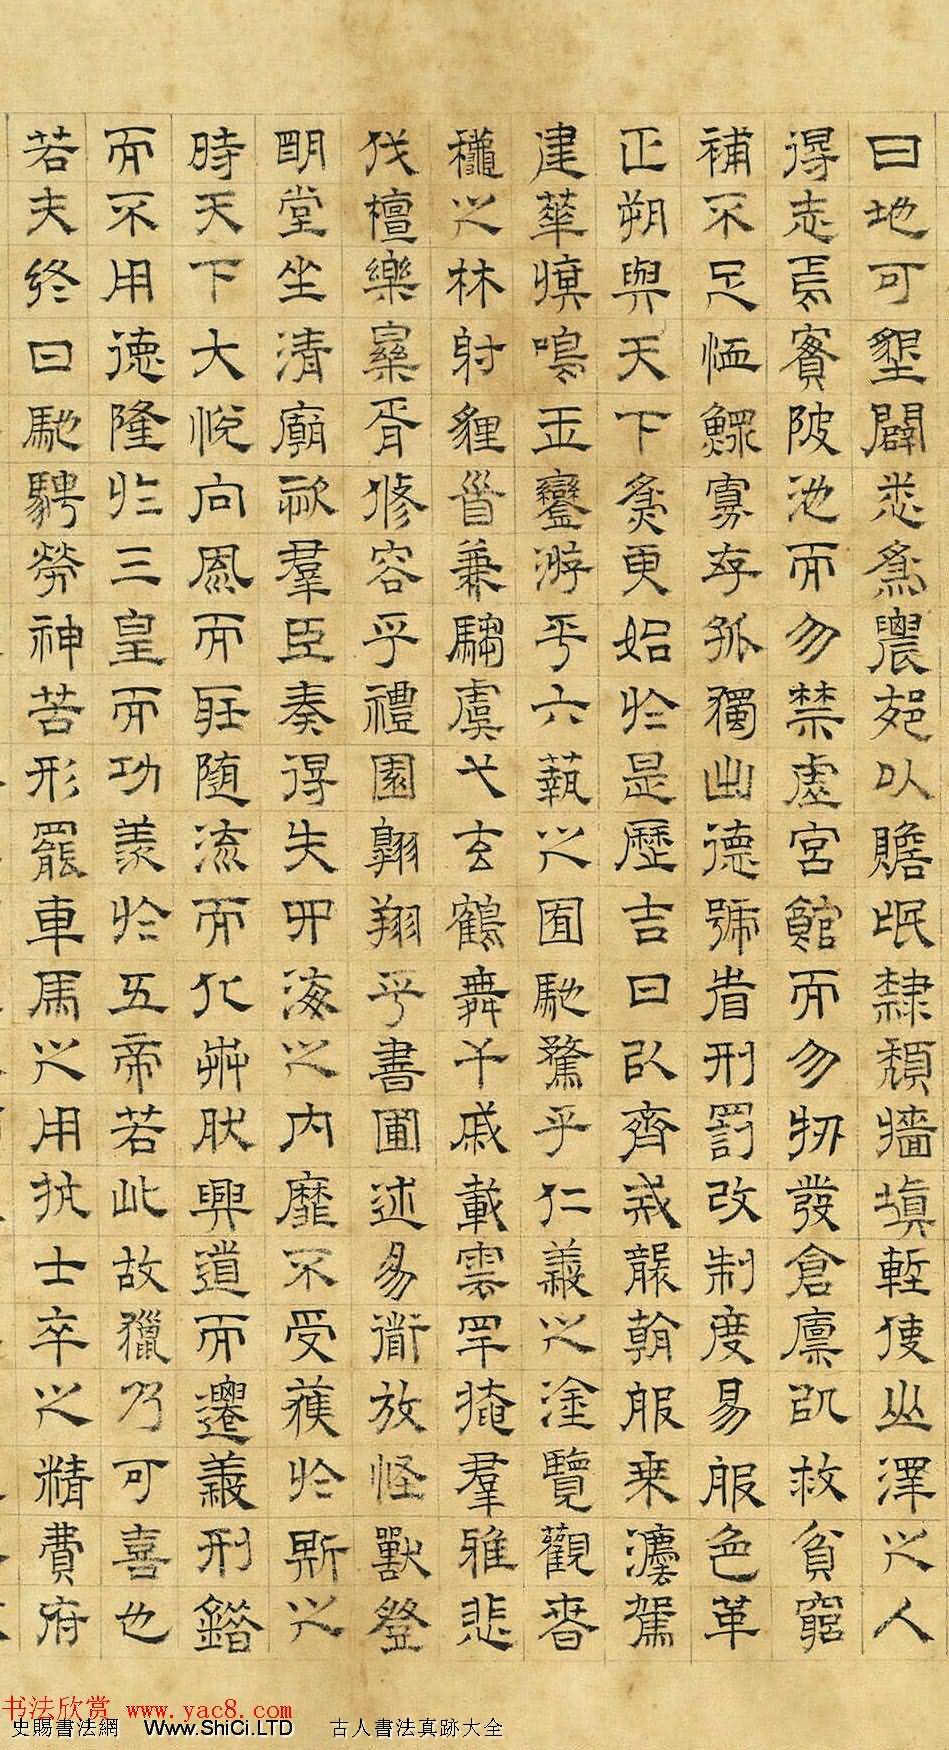 曰地可墾闢悉為農郊以贍氓隸頹牆填塹使山澤之人
得志焉實陂池而勿禁虛宮館而勿牣發倉廩以救貧窮
補不足恤鰥寡存孤獨出德號省刑罰改制度易服色革
正朔與天下為更始於是歷吉日以齊戒襲朝服乘灋駕
建華旗鳴玉鸞游乎六藝之囿馳騖乎仁義之塗覽觀春
秋之林射貍首兼騶虞弋玄鶴舞干戚載雲罕揜羣雅悲
伐檀樂樂胥修容乎禮園翱翔乎書圃述易道放怪獸登
明堂坐清廟次羣臣奏得失四海之內靡不受獲於斯之
時天下大悅向風而聽隨流而化卉然興道而遷義刑錯
而不用德隆於三皇而功羨於五帝若此故獵乃可喜也
若夫終日馳騁勞神苦形罷車馬之用抏士卒之精費府
书法欣赏 www.yac8.com
史賜書法網 Www.ShiCi.LTD 古人書法真跡大全